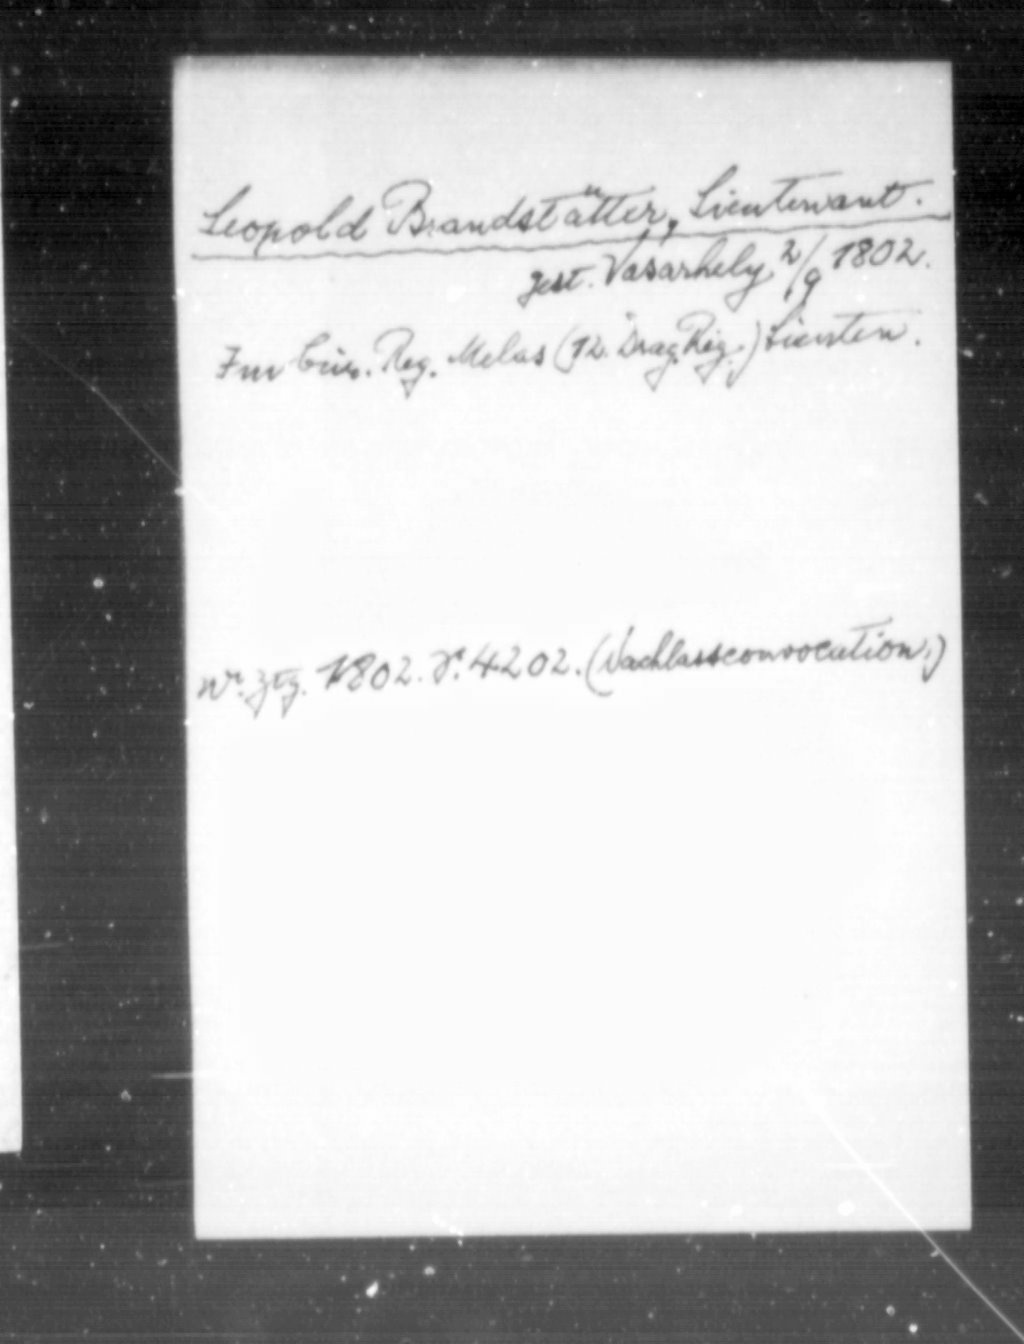 Leopold Brandstätter, Lieutenant.
gest. Vásárhely 2/9 1802.
Im Cür. Reg. Melas (12. Drag. Reg.) Lieuten.
Wr. Ztg. 1802. S. 4202. (Nachlassconvocation.)